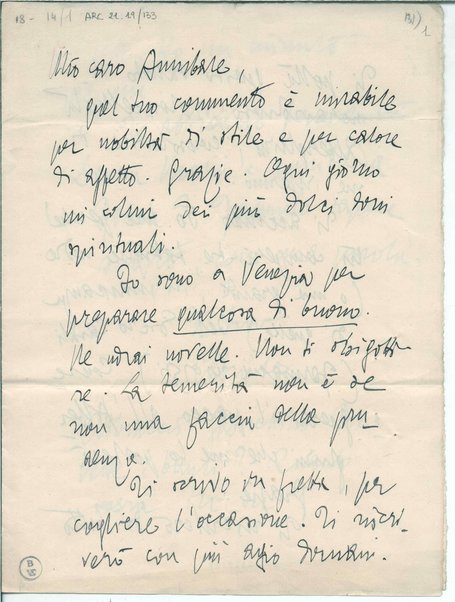 18 - 14/1 ARC. 21. 19/133
1
Mio caro Annibale,
quel tuo commento è mirabile
per nobiltà di stile e per calore
di affetto. Grazie. Ogni giorno
mi colmi dei più dolci doni
spirituali.
Io sono a Venezia per
preparare qualcosa di buono.
Ne udrai novelle. Non ti sbigotti-
re. La temerità non è se
non una faccia della pru
denza.
Ti scrivo in fretta, per
cogliere l'occasione. Ti riscri-
verò con più agio domani.